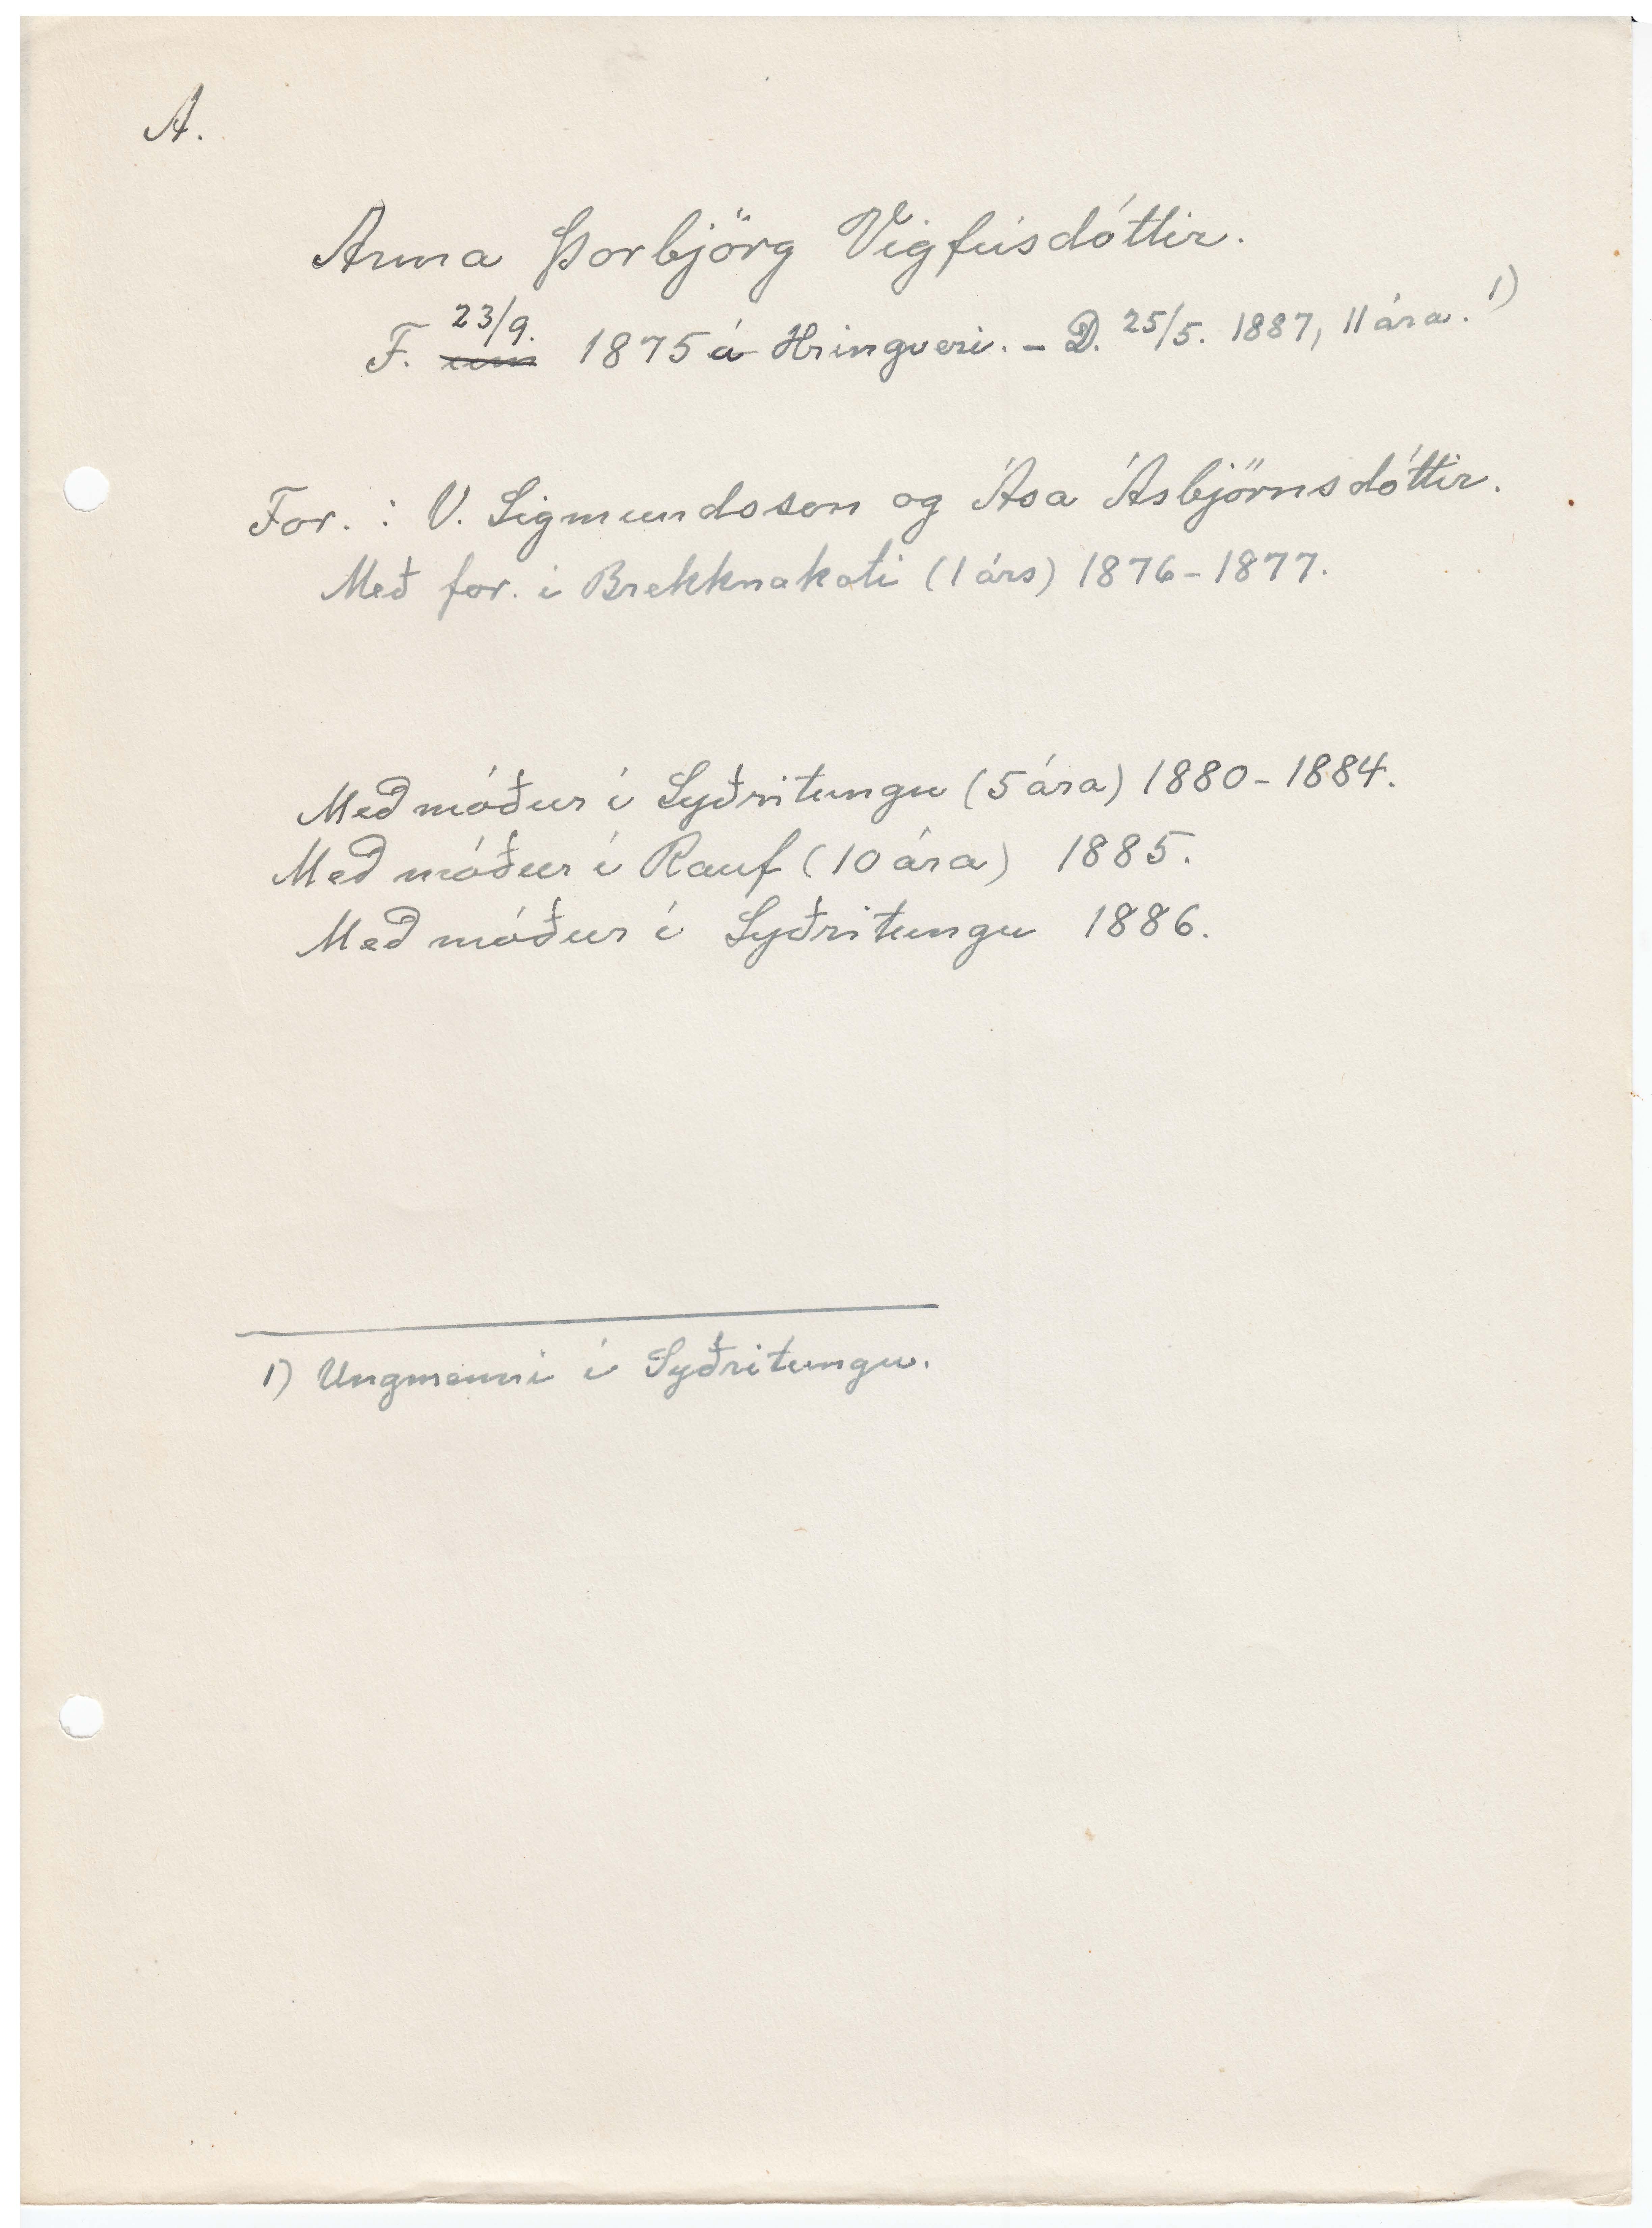 A.
Anna Þorbjörg Vigfúsdóttir.
F. 23/9. ~~um~~ 1875 á Hringveri. – D. 25/5. 1887, 11 ára. 1)
For. : V. Sigmundsson og Ása Ásbjörnsdóttir.
Með for. í Brekknakoti (1 árs) 1876-1877.
Með móður í Syðritungu (5 ára) 1880-1884.
Með móður í Rauf (10 ára) 1885.
Með móður í Syðritungu 1886.
1) Ungmenni í Syðritungu.